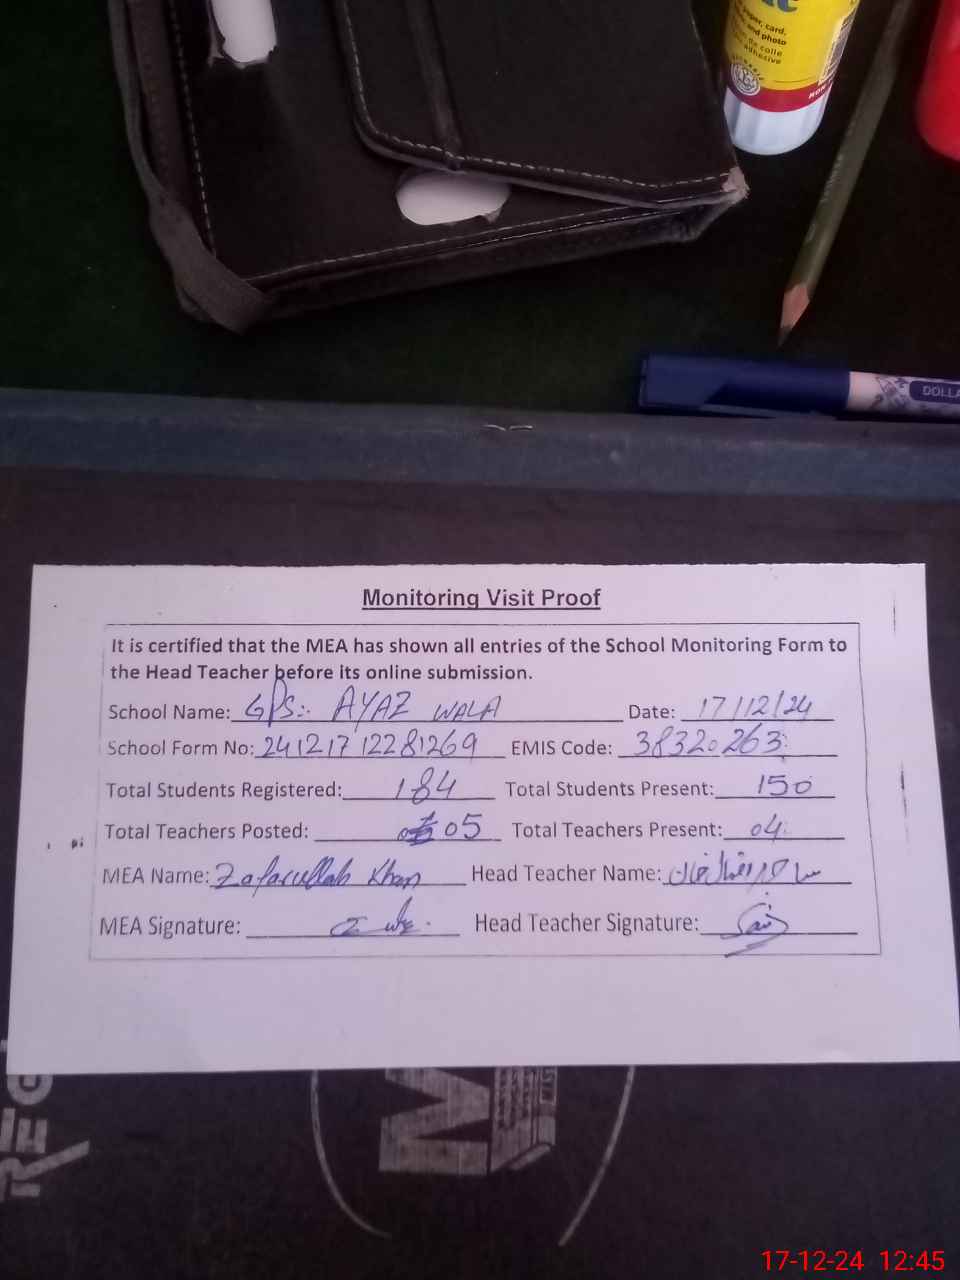 paper, card,
and photo
de colle
adhesive
DOLLA
Monitoring Visit Proof
It is certified that the MEA has shown all entries of the School Monitoring Form to
the Head Teacher before its online submission.
School Name: GPS:- AYAZ WALA Date: 17/12/24
School Form No: 24121712281269 EMIS Code: 38320263
Total Students Registered: 184 Total Students Present: 150
Total Teachers Posted: 05 Total Teachers Present: 04
MEA Name: Zafarullah Khan Head Teacher Name:
MEA Signature: Head Teacher Signature:
REG
17-12-24 12:45